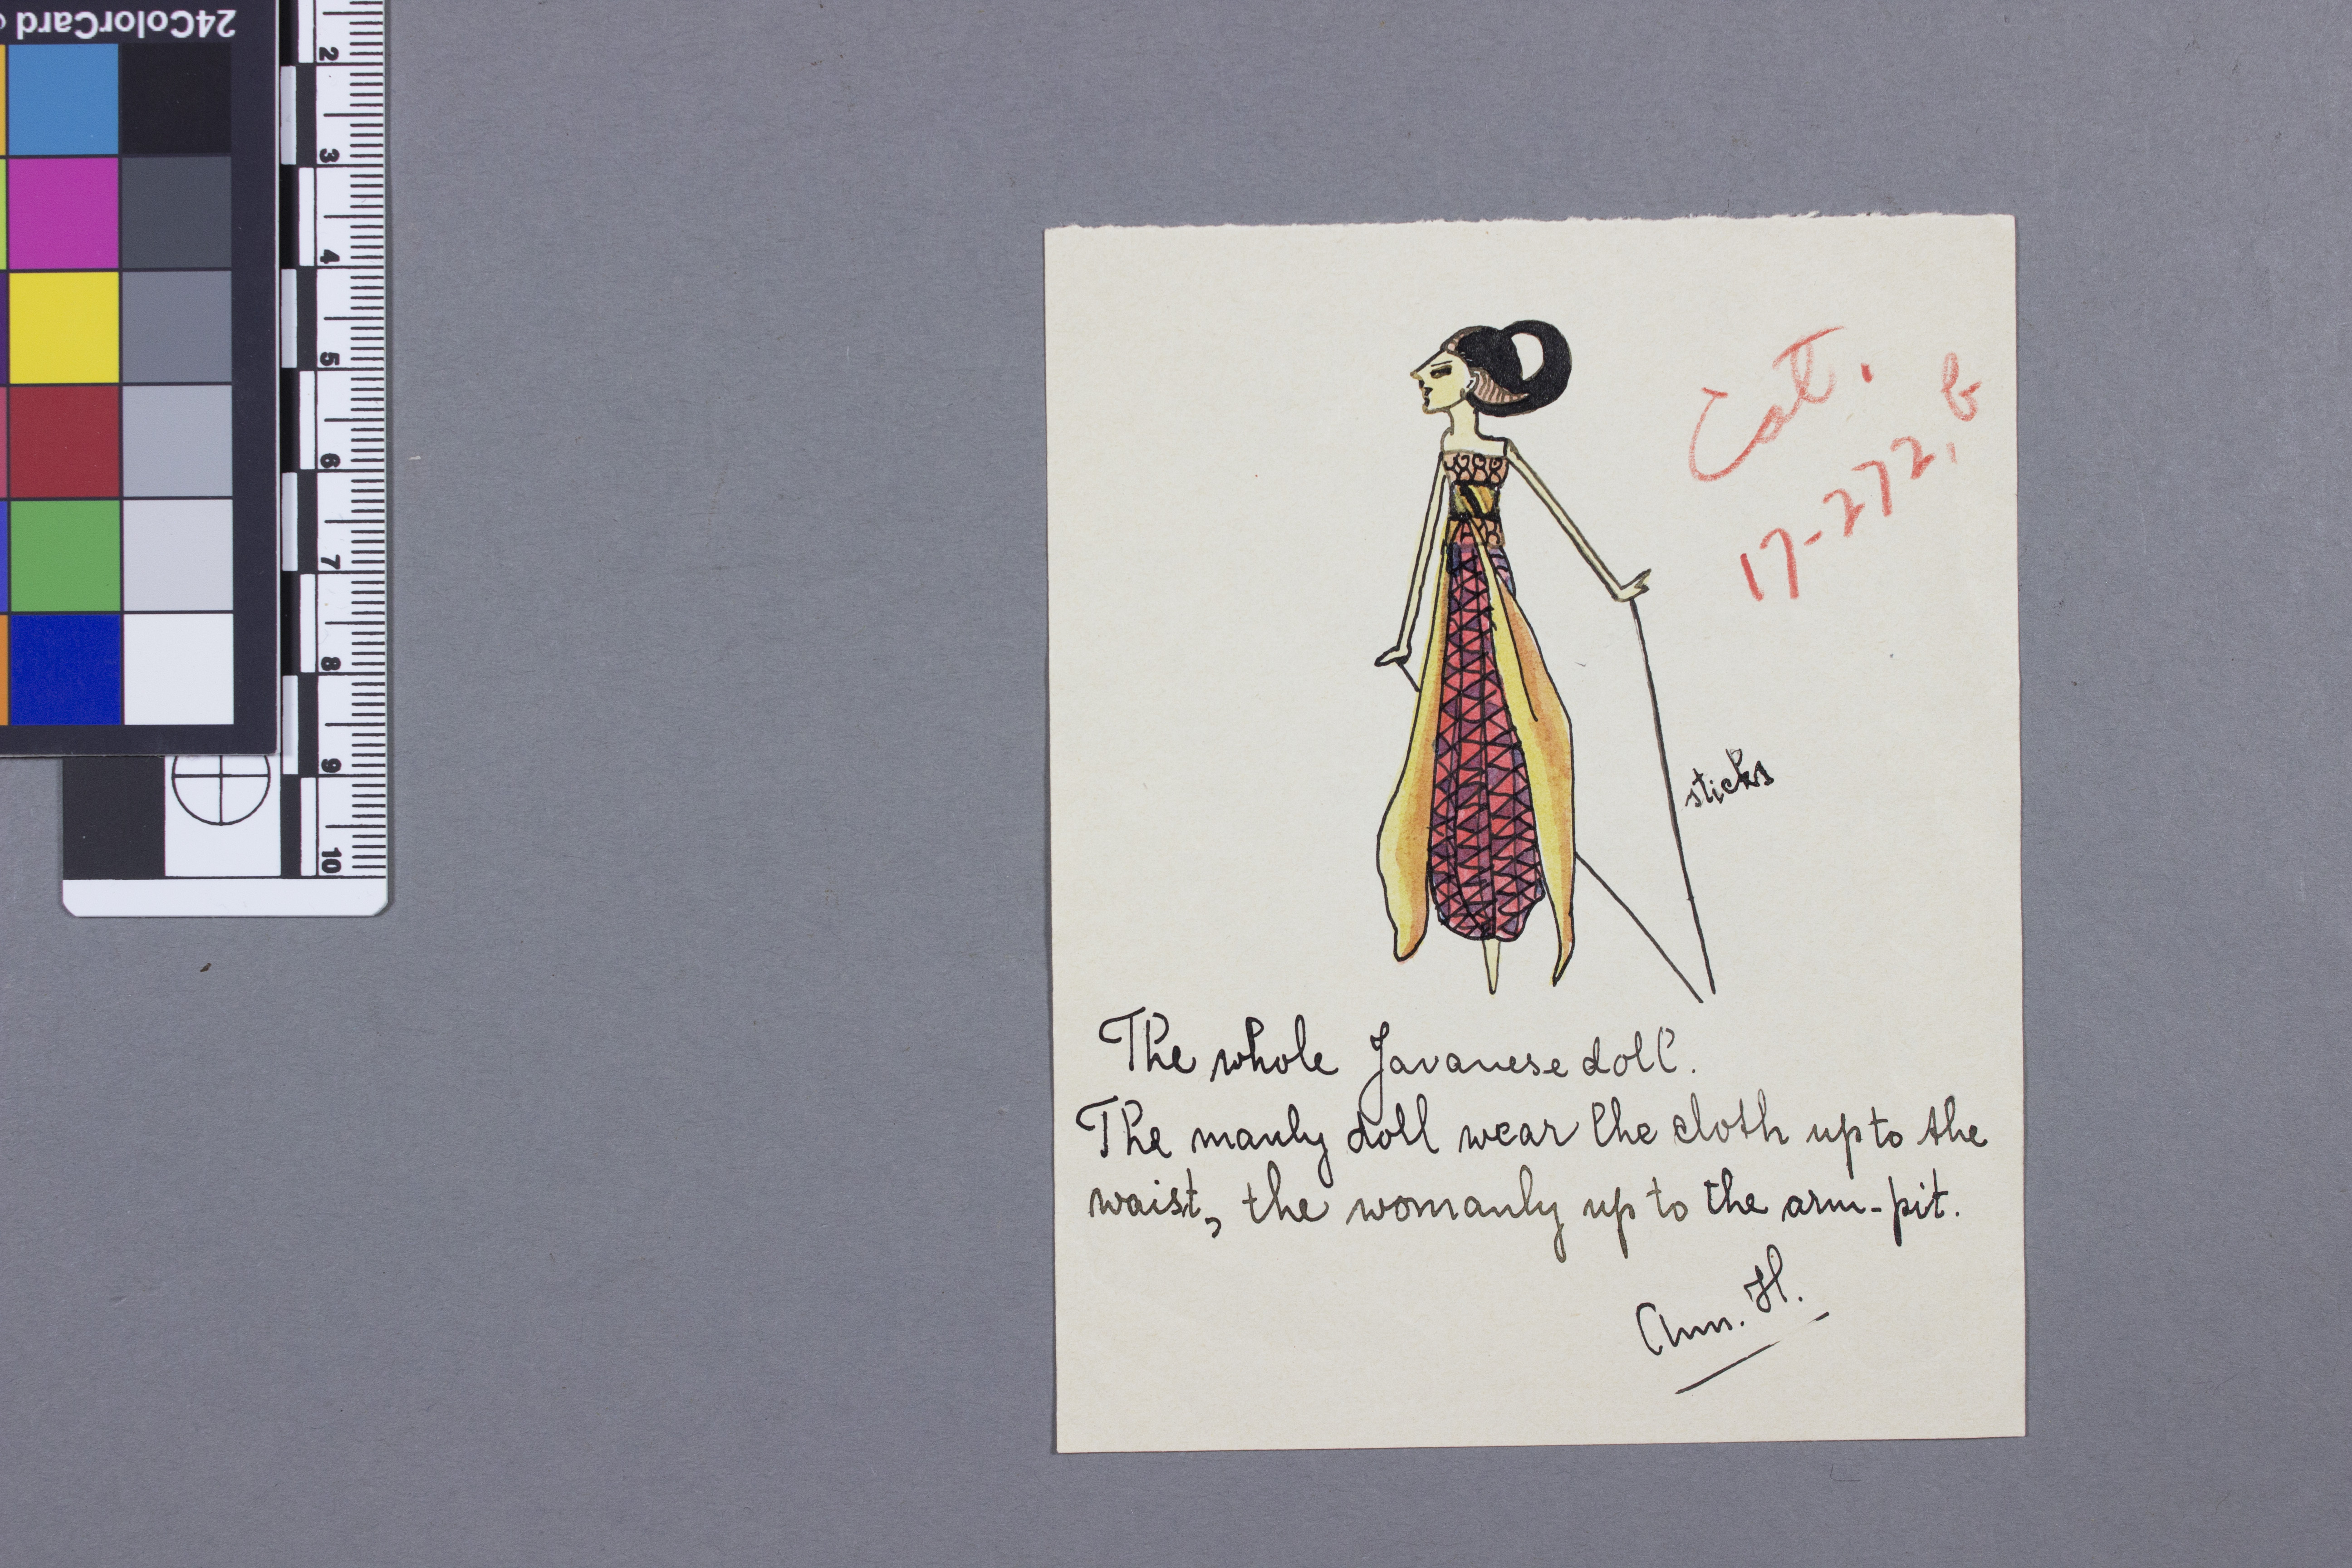 24ColorCard
2
3
4
5
6
7
8
9
10
Cat.
17-272, b
sticks
The whole Javanese doll.
The manly doll wear the cloth up to the
waist, the womanly up to the arm-pit.
Ann. H.